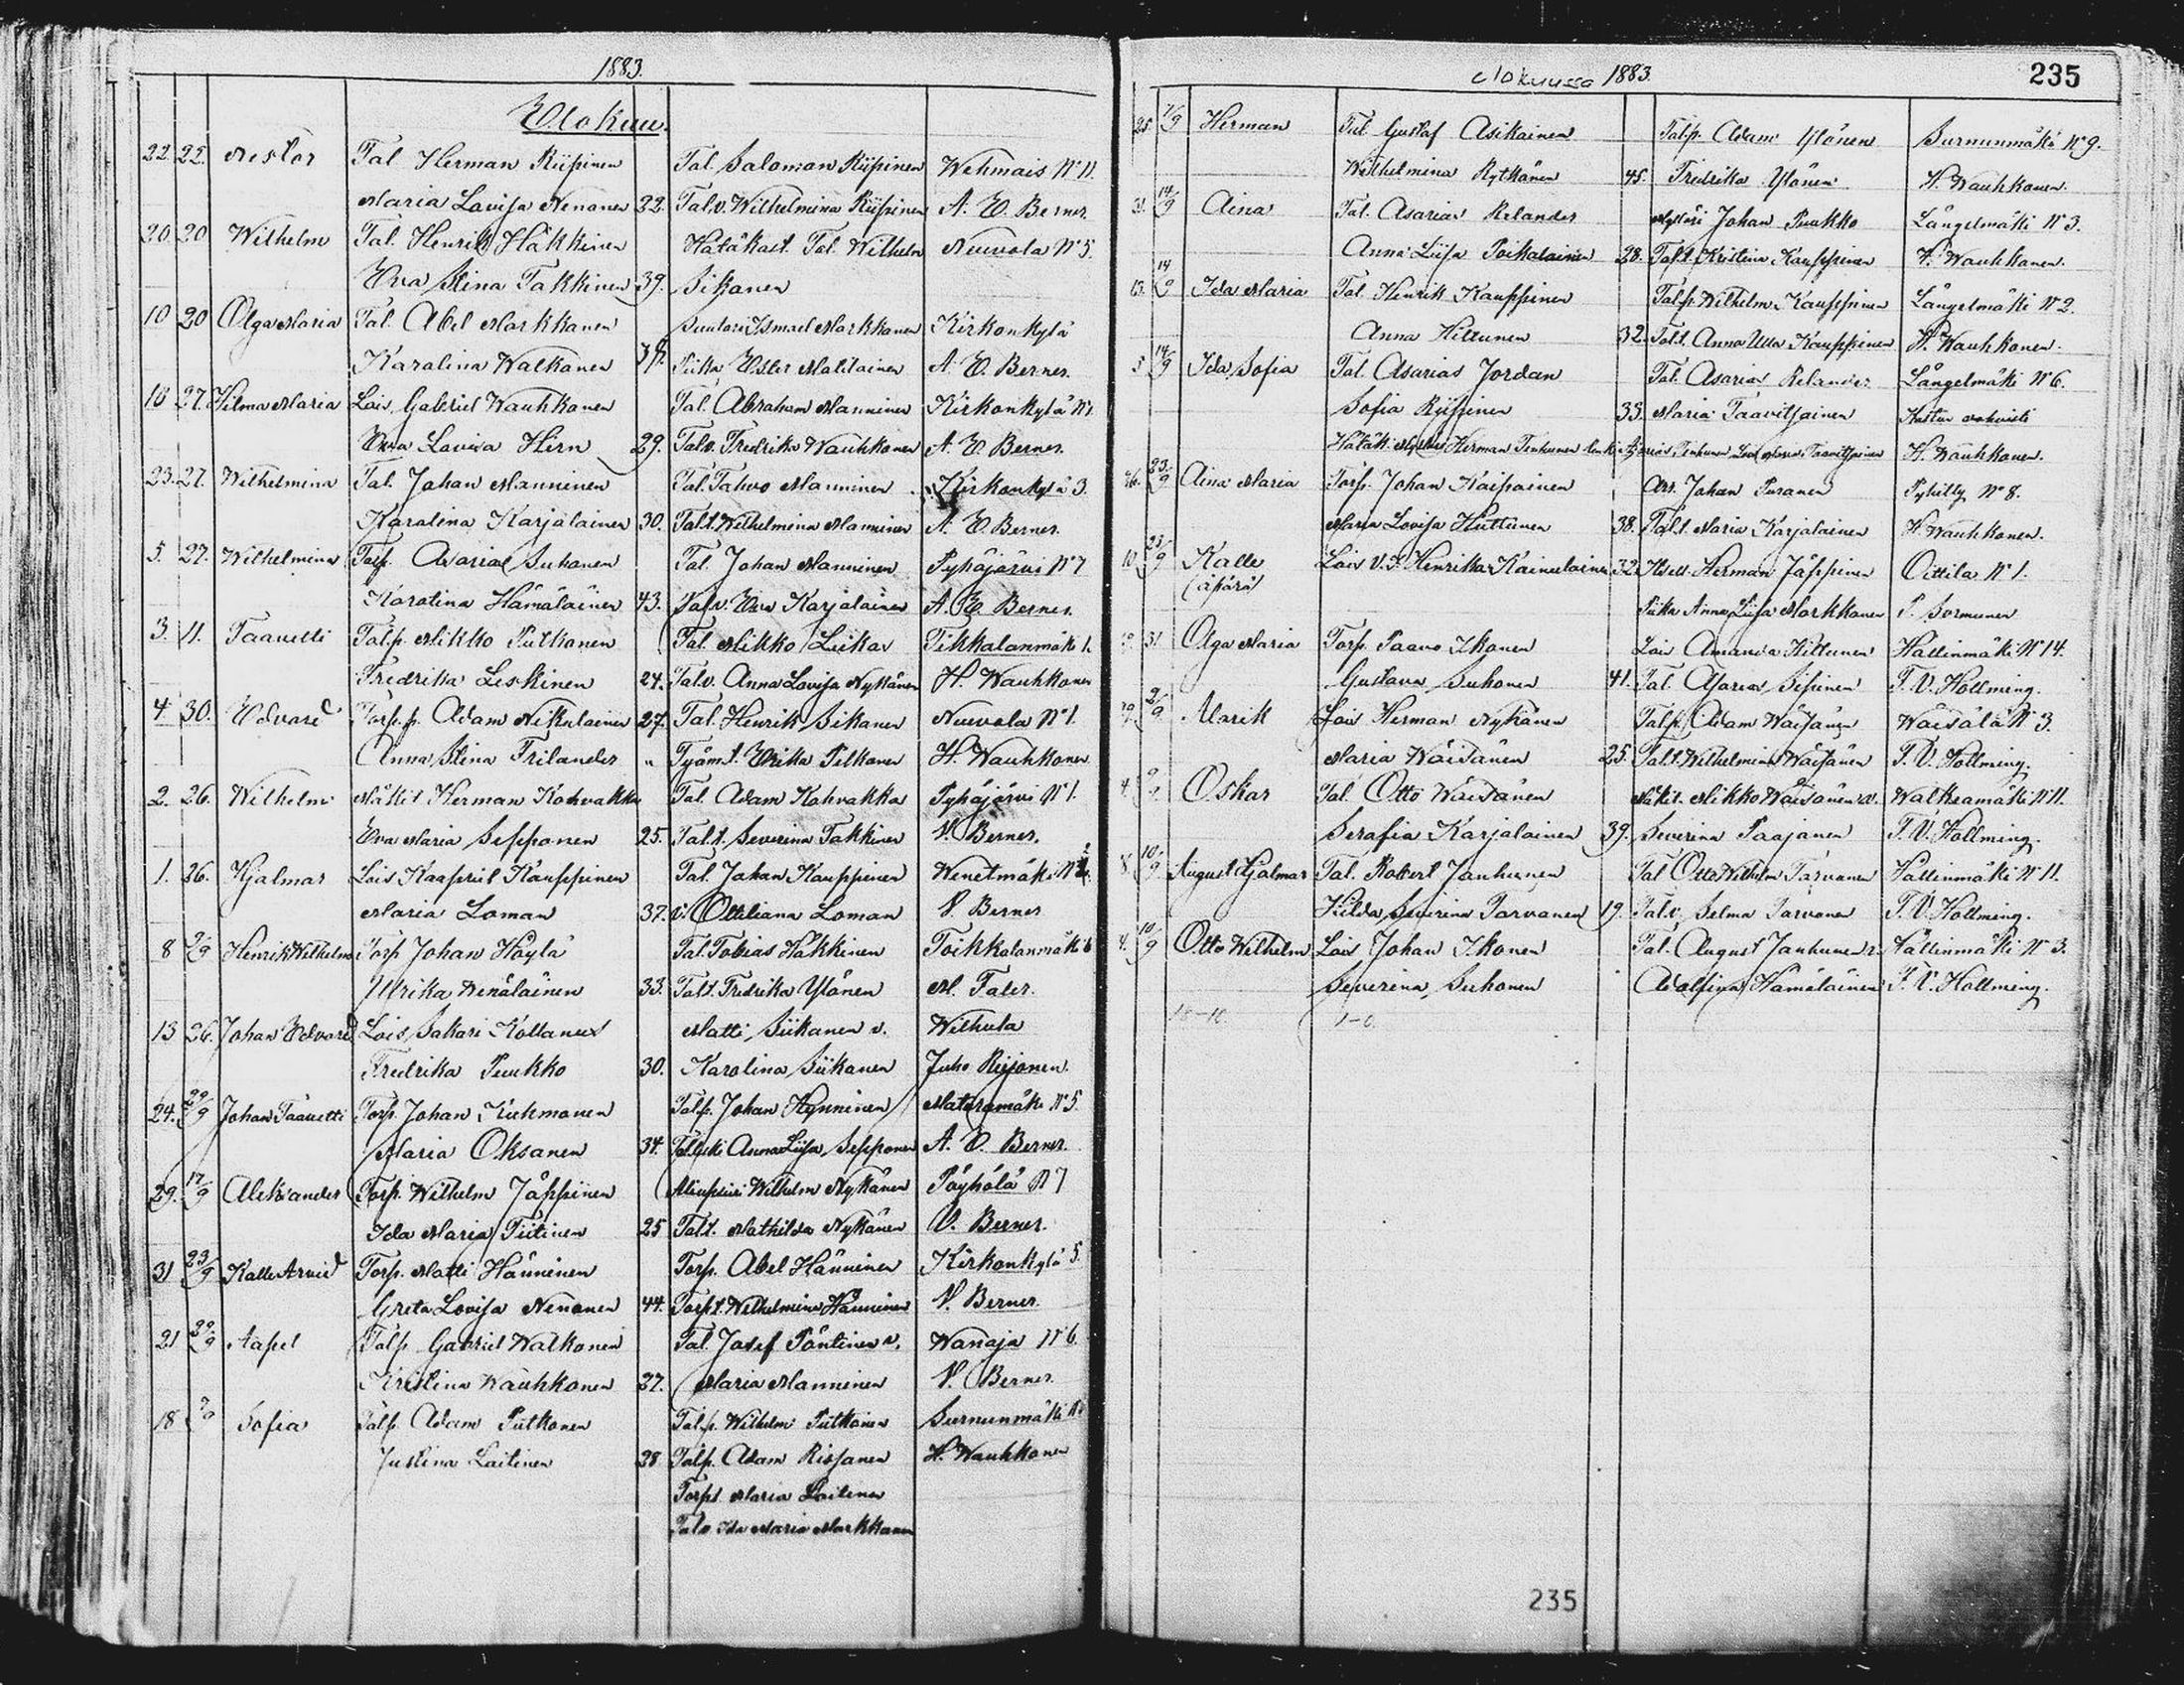 1883.
Elokuu.
22. 22. Nestor Tal. Herman Riipinen Tal. Salomon Riipinen Wehmais N:o 11.
Maria Lovisa Nenonen 22. Tal.v. Wilhelmina Riipinen A. E. Berner.
20 20 Wilhelm Tal. Henrik Häkkinen Hätäkast. Tal. Wilhelm Neuvola N:o 5.
Eva Stina Takkinen 39. Sikanen
10 20 Olga Maria Tal. Abel Markkanen Suutari Ismael Markkanen Kirkonkylä
Karolina Walkonen Piika Ester Matilainen A. E. Berner.
16 27. Hilma Maria Lois. Gabriel Wauhkonen Tal. Abraham Manninen Kirkonkylä N:o 1
Eva Lovisa Hirn 29. Tal.v. Fredrika Wauhkonen A. E. Berner.
23. 27. Wilhelmina Tal. Johan Manninen Tal. Tahvo Manninen Kirkonkylä 3.
Karolina Karjalainen 30. Tal.t. Wilhelmina Manninen A. E. Berner.
5. 27. Wilhelmina Talp. Asarias Suhonen Tal. Johan Manninen Pyhäjärvi N:o 7
Karolina Hämäläinen 43. Tal.v. Eva Karjalainen A. E. Berner.
3. 11. Taavetti Tal.p. Mikko Putkonen Tal. Mikko Liikas Tikkalanmäki 1.
Fredrika Leskinen 24. Tal.v. Anna Lovisa Nykänen H. Wauhkonen
4 30. Edvard Torp.p. Adam Nikulainen 27. Tal. Henrik Sikanen Neuvola N:o 1.
Anna Stina Frilander " Työm.t. Erika Pitkonen H. Wauhkonen
2. 26. Wilhelm Mäkit. Herman Kohvakka Tal. Adam Kohvakka Pyhäjärvi N:o 1.
Eva Maria Sepponen 25. Tal.t. Severina Takkinen V. Berner.
1. 26. Hjalmar Lois Kaapriel Kauppinen Tal. Johan Kauppinen Wenetmäki N:o
Maria Loman 37. v. Ottiliana Loman V. Berner
8 2/9 Henrik Wilhelm Torp. Johan Höylä Tal. Tobias Häkkinen Toikkalanmäki 6
Ulrika Wenäläinen 33. Tal.t. Fredrika Ylönen M. Faler.
13 26. Johan Edvard Lois. Sakari Kottanen Matti Siikanen v. Wilhula
Fredrika Puukko 30. Karolina Siikanen Juho Reijonen.
24. 29/9 Johan Taavetti Torp. Johan Kuhmonen Talp. Johan Hynninen Mataramäki N:o 5.
Maria Oksanen 34. Anna Liisa Sepponen A. E. Berner.
29. 17/9 Aleksander Torp. Wilhelm Jäppinen Wilhelm Nykänen Pöyhölä N:o 7
Ida Maria Tiitinen 25 Tal.t. Mathilda Nykänen V. Berner.
31 23/9 Kalle Arvid Torp. Matti Hänninen Torp. Abel Hänninen Kirkonkylä 5.
Greta Lovisa Nenonen 44. Torp.t. Wilhelmina Hänninen V. Berner.
21 29/9 Aapel Talp. Gabriel Walkonen Tal. Josef Pöntinen v. Wanaja N:o 6.
Kristina Wauhkonen 27. Maria Manninen V. Berner.
18 Sofia Talp. Adam Putkonen Tal.p. Wilhelm Putkonen Surnunmäki
Justina Laitinen 28 Talp. Adam Rissanen H. Wauhkonen
Torp.t. Maria Laitinen
Tal.v. Ida Maria Markkanen
elokuussa 1883. 235
25 7/9 Herman Tal. Gustaf Asikainen Talp. Adam Ylönen Surnunmäki N:o 9.
Wilhelmina Rytkönen 45. Fredrika Ylönen H. Wauhkonen.
31. 14/9 Aina Tal. Asarias Relander Johan Puukko Längelmäki N:o 3.
Anna Liisa Poikalainen 28. Tal.t. Kristina Kauppinen H. Wauhkonen.
13. 14/9 Ida Maria Tal. Henrik Kauppinen Talp. Wilhelm Kauppinen Längelmäki N:o 2.
Anna Hittunen 32. Tal.t. Anna Ulla Kauppinen H. Wauhkonen.
5 14/9 Ida Sofia Tal. Asarias Jordan Tal. Asarias Relander Längelmäki N:o 6.
Sofia Riipinen 33. Maria Taavitsainen Kastun vahvisti
Herman Tenhunen H. Wauhkonen.
26. 23/9 Aina Maria Torp. Johan Kaipainen Arr. Johan Puranen Pyhitty N:o 8.
Maria Lovisa Huttunen 38. Tal.t. Maria Karjalainen H. Wauhkonen.
10 23/9 Kalle Lois v. t. Henrika Kainulainen 32 Herman Jäppinen Oittila N:o 1.
(äpärä) Piika Anna Liisa Markkanen P. Sormunen
31 Olga Maria Torp. Paavo Ikonen Lois Amanda Kittunen Hällinmäki N:o 14.
Gustava Suhonen 41. Tal. Asarias Sipinen T. V. Hollming.
2/9 Marik Lois Herman Nykänen Talp. Adam Wäisänen Wäisälä N:o 3.
Maria Wäisänen 25. Tal.t. Wilhelmina Wäisänen T. V. Hollming.
4. Oskar Tal. Otto Wäisänen Mäkit. Mikko Wäisänen v. Walkeamäki N:o 11.
Serafia Karjalainen 39. Severina Paajanen T. V. Hollming.
8 10/9 August Hjalmar Tal. Robert Janhunen Tal Otto Wilhelm Tarvanen Hällinmäki N:o 11.
Hilda Severina Tarvanen 19. Tal.v. Selma Tarvanen T. V. Hollming.
4. 10/9 Otto Wilhelm Lois Johan Ikonen Tal. August Janhunen v. Hällinmäki N:o 3.
Severina Suhonen Adolfina Hämäläinen T. V. Hollming.
235